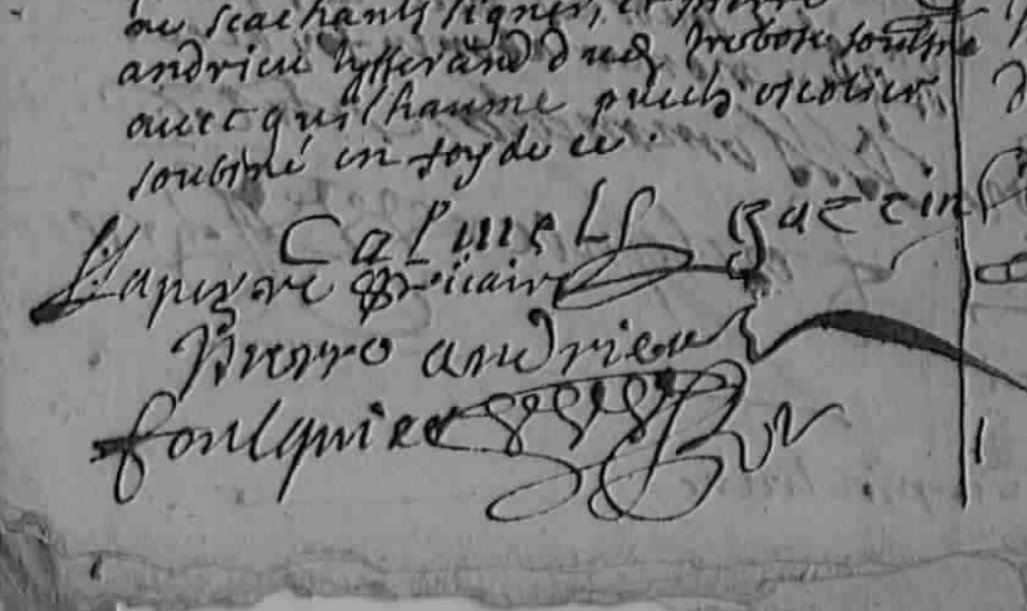 ne scachants signer, et pierre
andrieu tysserand dud trebosc soubsne
avec guilhaume puech escolier
soubsné en foy de ce
Calmels gazein
Lapeyre vicaire
Pierre andrieu
foulquier